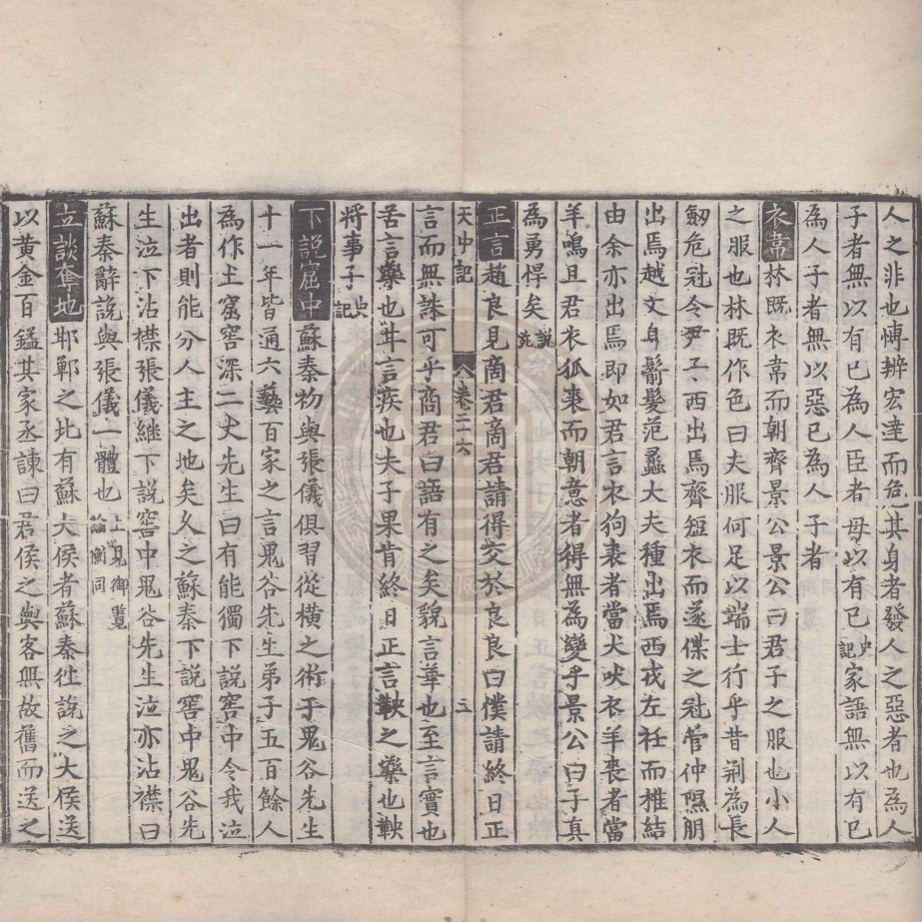 人之非也愽辨宏逹而危其身者發人之惡者也為人
子者無以有已為人臣者母以有已史記家語無以有已
為人子者無以惡已為人子者
衣韋林既衣韋而朝齊景公景公曰君子之服也小人
之服也林既作色曰夫服何足以端士行乎昔荆為長
劒危冠令尹子西出焉齊短衣而遂偞之冠管仲隰朋
出焉越文身鬋髮范蠡大夫種出焉西戎左衽而椎結
由余亦出焉即如君言衣狗裘者當犬吠衣羊裘者當
羊鳴且君衣狐裘而朝意者得無為變乎景公曰子真
為勇悍矣說苑
正言趙良見商君商君請得交於良良曰僕請終日正
天中記 卷二十六 三
言而無誅可乎商君曰語有之矣貌言華也至言實也
苦言藥也甘言疾也夫子果肯終日正言鞅之藥也鞅
將事子史記
下說窟中蘇秦物與張儀俱習從橫之術于鬼谷先生
十一年皆通六藝百家之言鬼谷先生弟子五百餘人
為作土窟窖深二丈先生曰有能獨下說窖中令我泣
出者則能分人主之地矣久之蘇秦下説窖中鬼谷先
生泣下沾襟張儀繼下説窖中鬼谷先生泣亦沾襟曰
蘇秦辭說與張儀一體也上見御覽論衡同
立談奪地邯鄲之北有蘇大侯者蘇秦徃說之大侯送
以黄金百鎰其家丞諫曰君侯之與客無故舊而送之